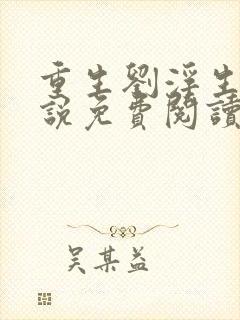 重生劉淫生
說免費閱讀
吴某益